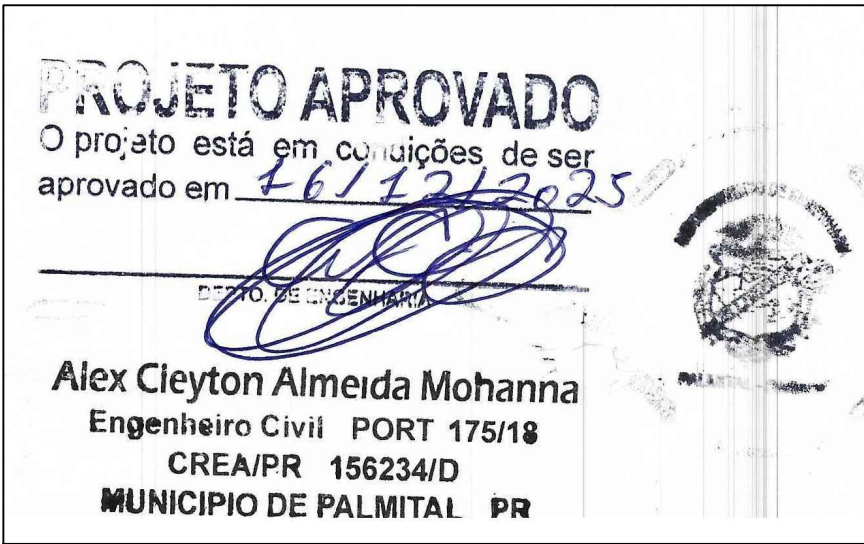 PROJETO APROVADO
O projeto está em condições de ser
aprovado em 16/12/2025
DEPTO. DE ENGENHARIA
Alex Cleyton Almeida Mohanna
Engenheiro Civil PORT 175/18
CREA/PR 156234/D
MUNICIPIO DE PALMITAL PR
DE ENGENHARIA
PALMITAL